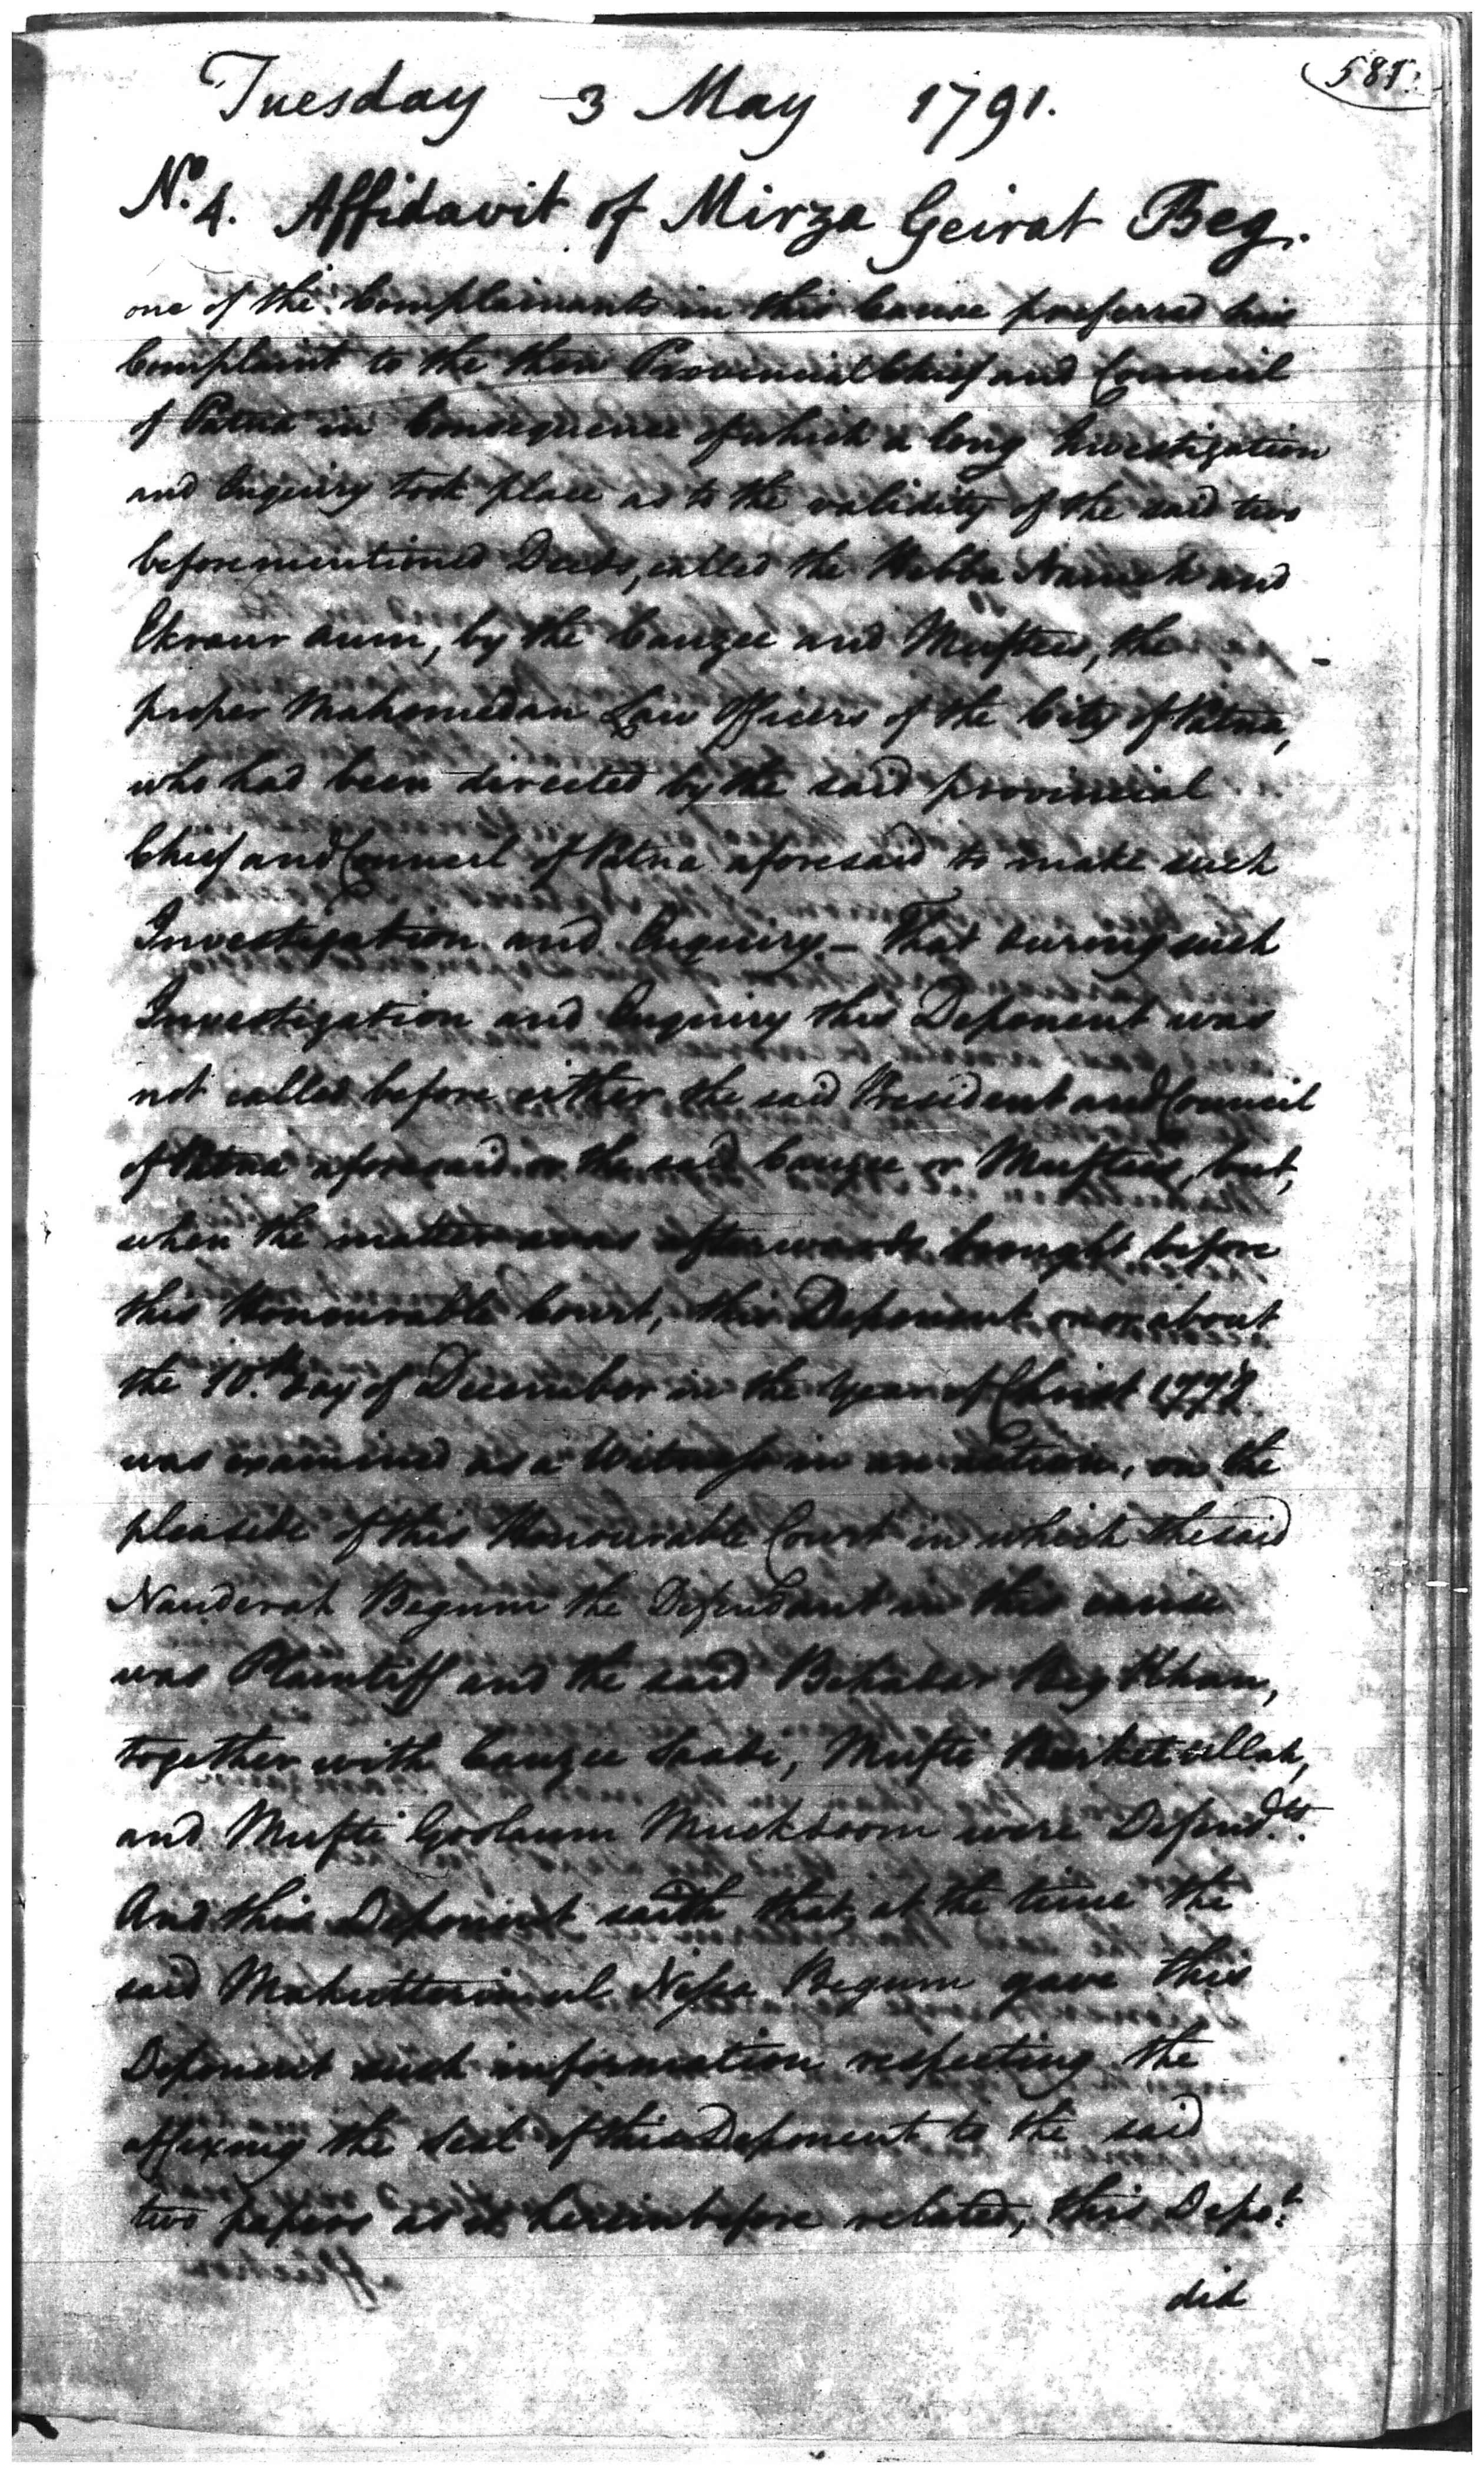 585.
Tuesday 3 May 1791.
No. 4. Affidavit of Mirza Geirat Beg.
one of the Complainants in this Cause preferred his
Complaint to the then Provincial Chief and Council
of Patna in Consequence of which a long Investigation
and Enquiry took place as to the validity of the said two
beforementioned Deeds, called the Hebba Nameh and
Ekraur aum, by the Cauzee and Muftees, the
proper Mahomedan Law Officers of the City of Patna,
who had been directed by the said provincial
Chief and Council of Patna aforesaid to make such
Investigation and Enquiry. – That during such
Investigation and Enquiry this Deponent was
not called before either the said President and Council
of Patna aforesaid or the said Cauzee or Muftees, but,
when the matter was afterwards brought before
this Honourable Court, this Deponent on or about
the 10.th day of December in the Year of Christ
was examined as a Witness in an action, on the
pleaside of this Honourable Court in which the said
Nauderah Begum the Defendant in this cause
was Plaintiff and the said Behader Beg Khan,
together with Cauzee Saadi, Mufti Barket ullah,
and Mufti Goolaum Muckdoom were Defend.ts
And this Deponent saith that, at the time the
said Nissa Begum gave this
Deponent such information respecting the
affixing the Seal of this Deponent to the said
two papers as is hereinbefore related, this Depo.t
did